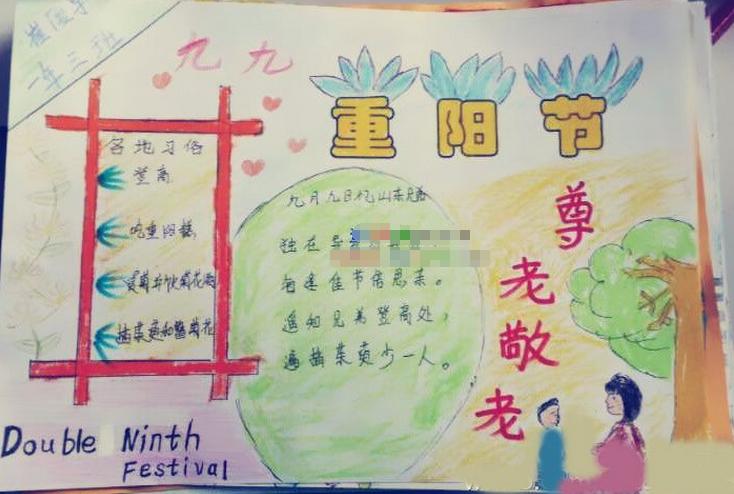 一年三班
九九
重阳节
各地习俗
登高
吃重阳糕
赏菊并饮菊花酒
插茱萸和簪菊花
九月九日忆山东兄弟
独在异
每逢佳节倍思亲。
遥知兄弟登高处,
遍插茱萸少一人。
尊老敬老
Double Ninth
Festival